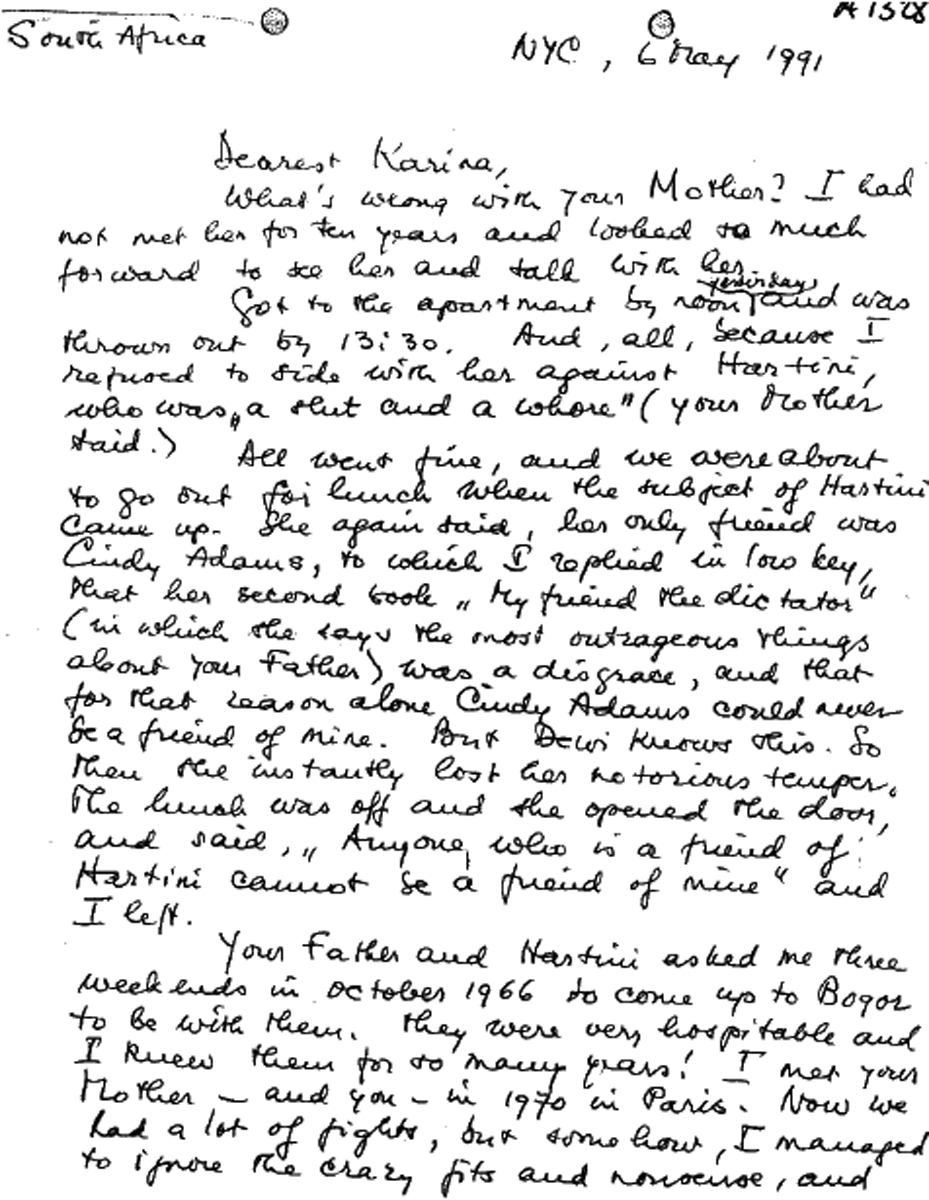 South Africa
A 1328
NYC, 6 May 1991
Dearest Karina,
What's wrong with your Mother? I had
not met her for ten years and looked so much
forward to see her and talk with her.
yesterday,
Got to the apartment by noon and was
thrown out by 13:30. And, all, because I
refused to side with her against Hartini,
who was „a slut and a whore" (your Mother
said.)
All went fine, and we were about
to go out for lunch when the subject of Hartini
came up. She again said, her only friend was
Cindy Adams, to which I replied in low key,
that her second book „My friend the dictator"
(in which she says the most outrageous things
about your Father) was a disgrace, and that
for that reason alone Cindy Adams could never
be a friend of mine. But Dewi knows this. So
then she instantly lost her notorious temper.
The lunch was off and she opened the door,
and said, „Anyone, who is a friend of
Hartini cannot be a friend of mine" and
I left.
Your Father and Hartini asked me three
weekends in October 1966 to come up to Bogor
to be with them. They were very hospitable and
I knew them for so many years! I met your
Mother – and you – in 1970 in Paris. Now we
had a lot of fights, but somehow, I managed
to ignore the crazy fits and nonsense, and